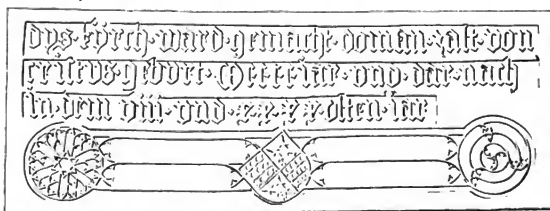 dys · kyrch · ward · gemacht · do man · zalt · von
cristus · geburt · Mcccc iar · vnd · dar · nach
in dem viii · vnd · xxxx · osten · iar